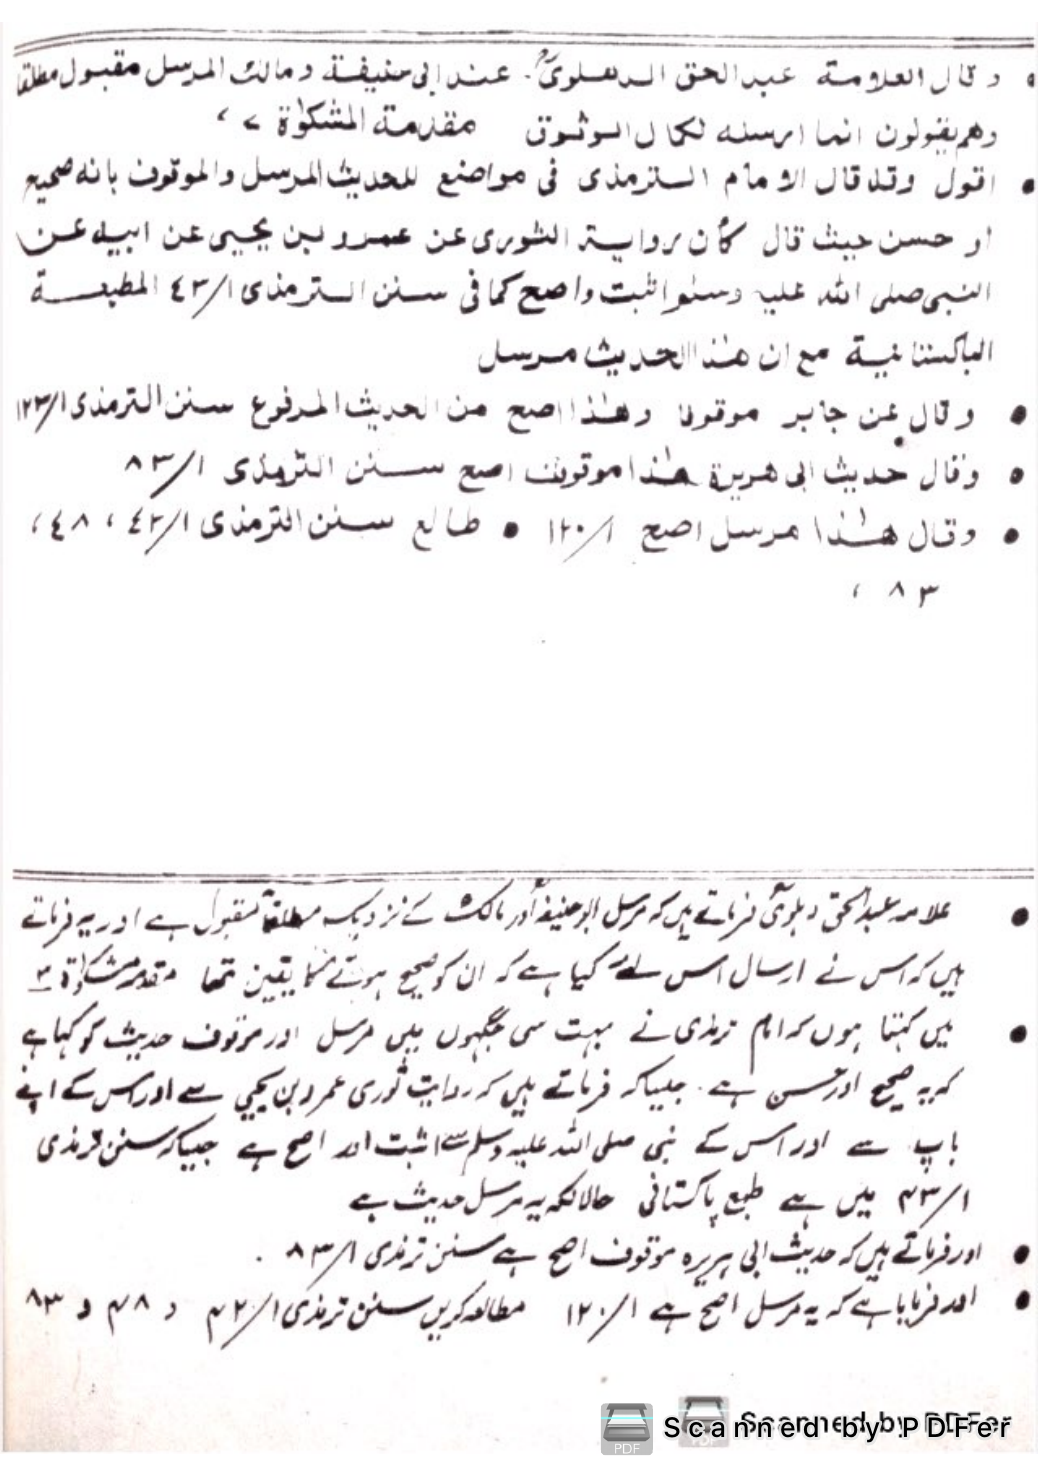 • وقال العلامة عبدالحق الدهلوىؒ. عند ابى حنيفة ومالك المرسل مقبول مطلقا
وهم يقولون انما ارسله لكمال الوثوق مقدمة المشكوٰة >،
• اقول وقد قال الامام الترمذى فى مواضع للحديث المرسل والموقوف بانه صحيح
او حسن حيث قال كأن رواية الثورى عن عمرو بن يحيى عن ابيه عن
النبى صلى الله عليه وسلم اثبت واصح كما فى سنن الترمذى ١/٤٣ المطبعة
الباكستانية مع ان هٰذا الحديث مرسل
• وقال عن جابر موقوفا وهٰذا اصح من الحديث المرفوع سنن الترمذى ١/١٢٣
• وقال حديث ابى هريرة هٰذا موقوف اصح سنن الترمذى ١/٨٣
• وقال هٰذا مرسل اصح ١/١٢٠ • طالع سنن الترمذى ١/٤٢ ، ٤٨ ،
٨٣ ،
• علامہ عبدالحق دہلویؒ فرماتے ہیں کہ مرسل ابوحنیفہؒ اور مالکؒ کے نزدیک مطلقاً مقبول ہے اور یہ فرماتے
ہیں کہ اس نے ارسال اس لئے کیا ہے کہ ان کو صحیح ہونے کا یقین تھا مقدمہ مشکوٰۃ ٣
• میں کہتا ہوں کہ امام ترمذی نے بہت سی جگہوں میں مرسل اور موقوف حدیث کو کہا ہے
کہ یہ صحیح اور حسن ہے . جیساکہ فرماتے ہیں کہ روایت ثوری عمرو بن یحییٰ سے اور اس کے اپنے
باپ سے اور اس کے نبی صلی اللہ علیہ وسلم سے اثبت اور اصح ہے جیساکہ سنن ترمذی
١/۴٣ میں ہے طبع پاکستانی حالانکہ یہ مرسل حدیث ہے
• اور فرماتے ہیں کہ حدیث ابی ہریرہ موقوف اصح ہے سنن ترمذی ١/٨٣ .
• اور فرمایا ہے کہ یہ مرسل اصح ہے ١/١٢٠ مطالعہ کریں سنن ترمذی ١/۴٢ و ۴٨ و ٨٣
Scanned by PDFer